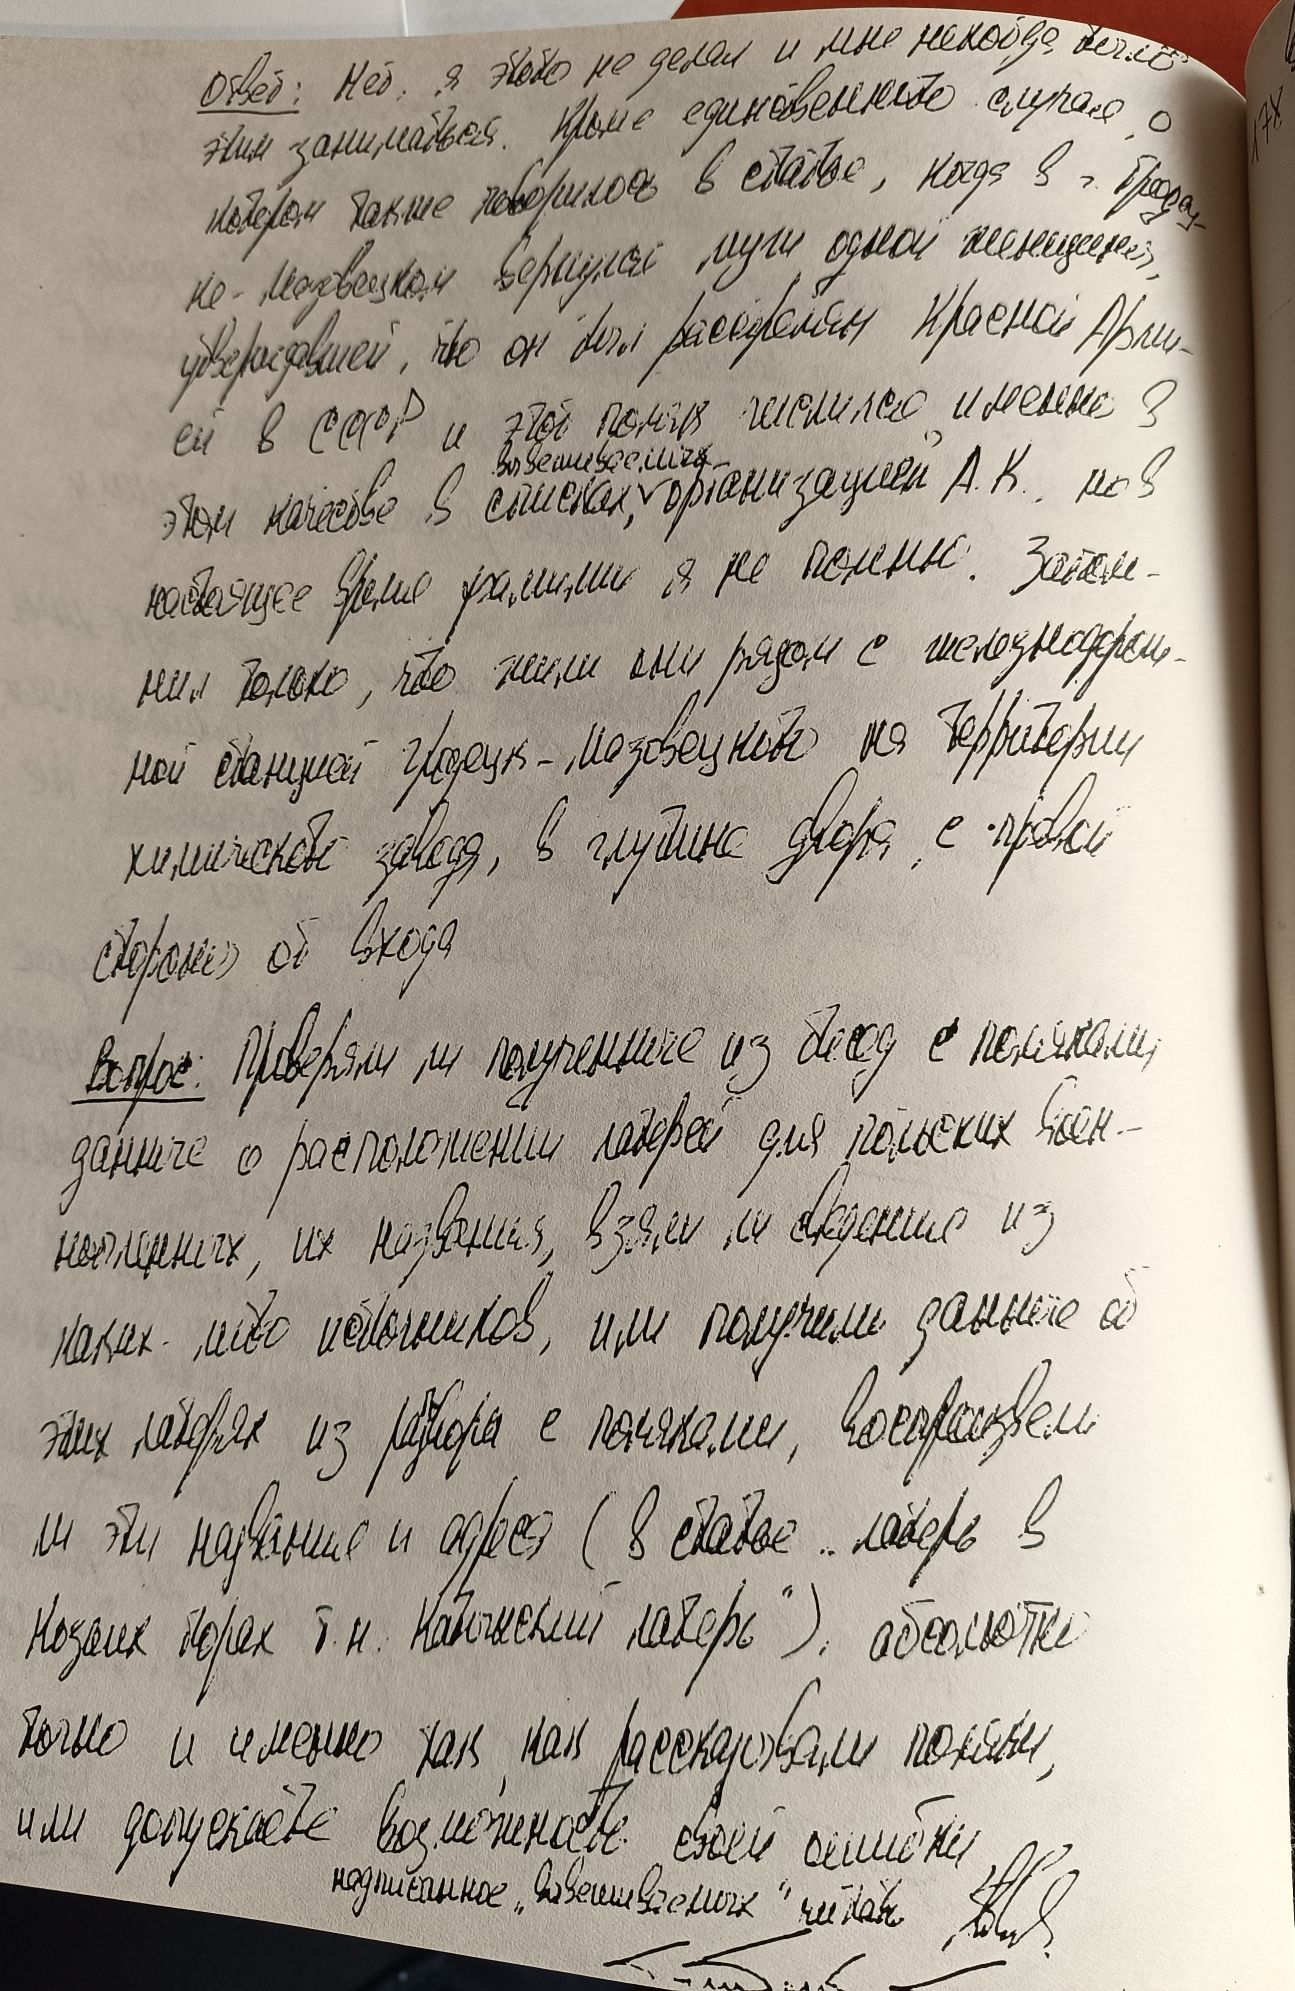 Ответ: Нет, я этого не делал и мне некогда было
этим заниматься. Кроме единственного случая, о
котором также говорилось в статье, когда в г. Гродзис-
ке-Мазовецком вернулся муж одной женщины,
утверждавшей, что он был расстрелян Красной Арми-
ей в СССР и этот поляк числился именно в
вывешиваемых
этом качестве в списках, организацией А.К., но в
настоящее время фамилии я не помню. Запом-
нил только, что жили они рядом с железнодорож-
ной станцией Гродзиск-Мазовецкого на территории
химического завода, в глубине двора, с правой
стороны от входа
Вопрос: Проверяли ли полученные из бесед с поляками
данные о расположении лагерей для польских воен-
нопленных, их названия, взяли ли сведения из
каких-либо источников, или получили данные об
этих лагерях из разговора с поляками, воспроизвели
ли эти названия и адреса (в статье „лагерь в
Козьих горах т.н. Катынский лагерь"). абсолютно
точно и именно так, как рассказывали поляки,
или допускаете возможность своей ошибки
надписанное „вывешиваемых" читать